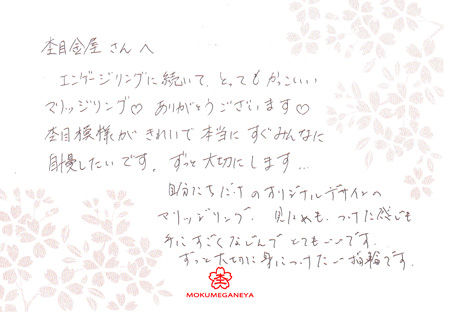 杢目金屋さんへ
エンゲージリングに続いて、とってもかっこいい
マリッジリング♡ ありがとうございます♡
杢目模様がきれいで本当にすぐみんなに
自慢したいです。ずっと大切にします...
自分たちだけのオリジナルデザインの
マリッジリング。見ためも、つけた感じも
手にすごくなじんでとてもいいです。
ずっと大切に身につけたい指輪です。
MOKUMEGANEYA